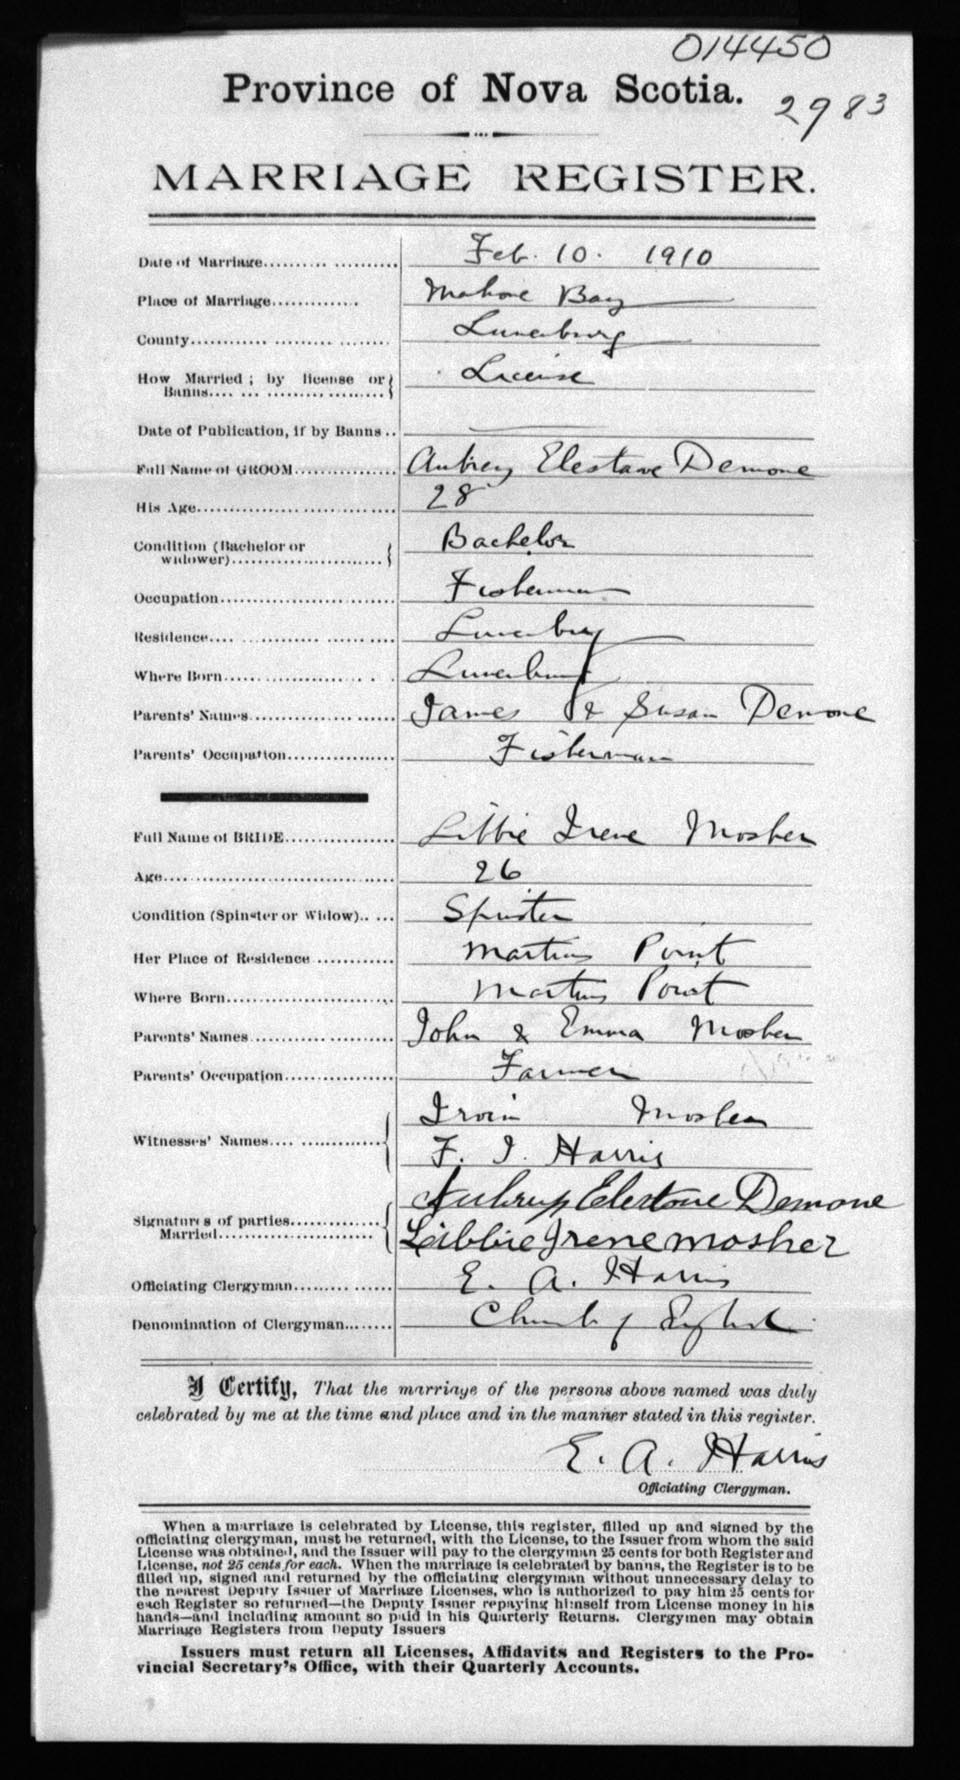 014450
Province of Nova Scotia.
2983
MARRIAGE REGISTER.
Date of Marriage.......... Feb. 10. 1910
Place of Marriage............. Mahone Bay
County........................... Lunenburg
How Married; by license or License
Banns....
Date of Publication, if by Banns ..
Full Name of GROOM................ Aubrey Elestane Demone
His Age............................... 28
Condition (Bachelor or Bachelor
widower)........................
Occupation........................... Fisherman
Residence.... Lunenburg
Where Born........................ Lunenburg
Parents' Names................... James & Susan Demone
Parents' Occupation................ Fisherman
Full Name of BRIDE................ Libbie Irene Mosher
Age................................... 26
Condition (Spinster or Widow).. ... Spinster
Her Place of Residence ........... Martins Point
Where Born........................ Martins Point
Parents' Names................... John & Emma Mosher
Parents' Occupation................ Farmer
Irvin Mosher
Witnesses' Names.... .............
F. I. Harris
Aubrey Elestane Demone
Signatures of parties..............
Married........................
Libbie Irene mosher
Officiating Clergyman............. E. A. Harris
Denomination of Clergyman........ Church of England
I Certify, That the marriage of the persons above named was duly
celebrated by me at the time and place and in the manner stated in this register.
E. A. Harris
Officiating Clergyman.
When a marriage is celebrated by License, this register, filled up and signed by the
officiating clergyman, must be returned, with the License, to the Issuer from whom the said
License was obtained, and the Issuer will pay to the clergyman 25 cents for both Register and
License, not 25 cents for each. When the marriage is celebrated by banns, the Register is to be
filled up, signed and returned by the officiating clergyman without unnecessary delay to
the nearest Deputy Issuer of Marriage Licenses, who is authorized to pay him 25 cents for
each Register so returned—the Deputy Issuer repaying himself from License money in his
hands—and including amount so paid in his Quarterly Returns. Clergymen may obtain
Marriage Registers from Deputy Issuers
Issuers must return all Licenses, Affidavits and Registers to the Pro-
vincial Secretary's Office, with their Quarterly Accounts.